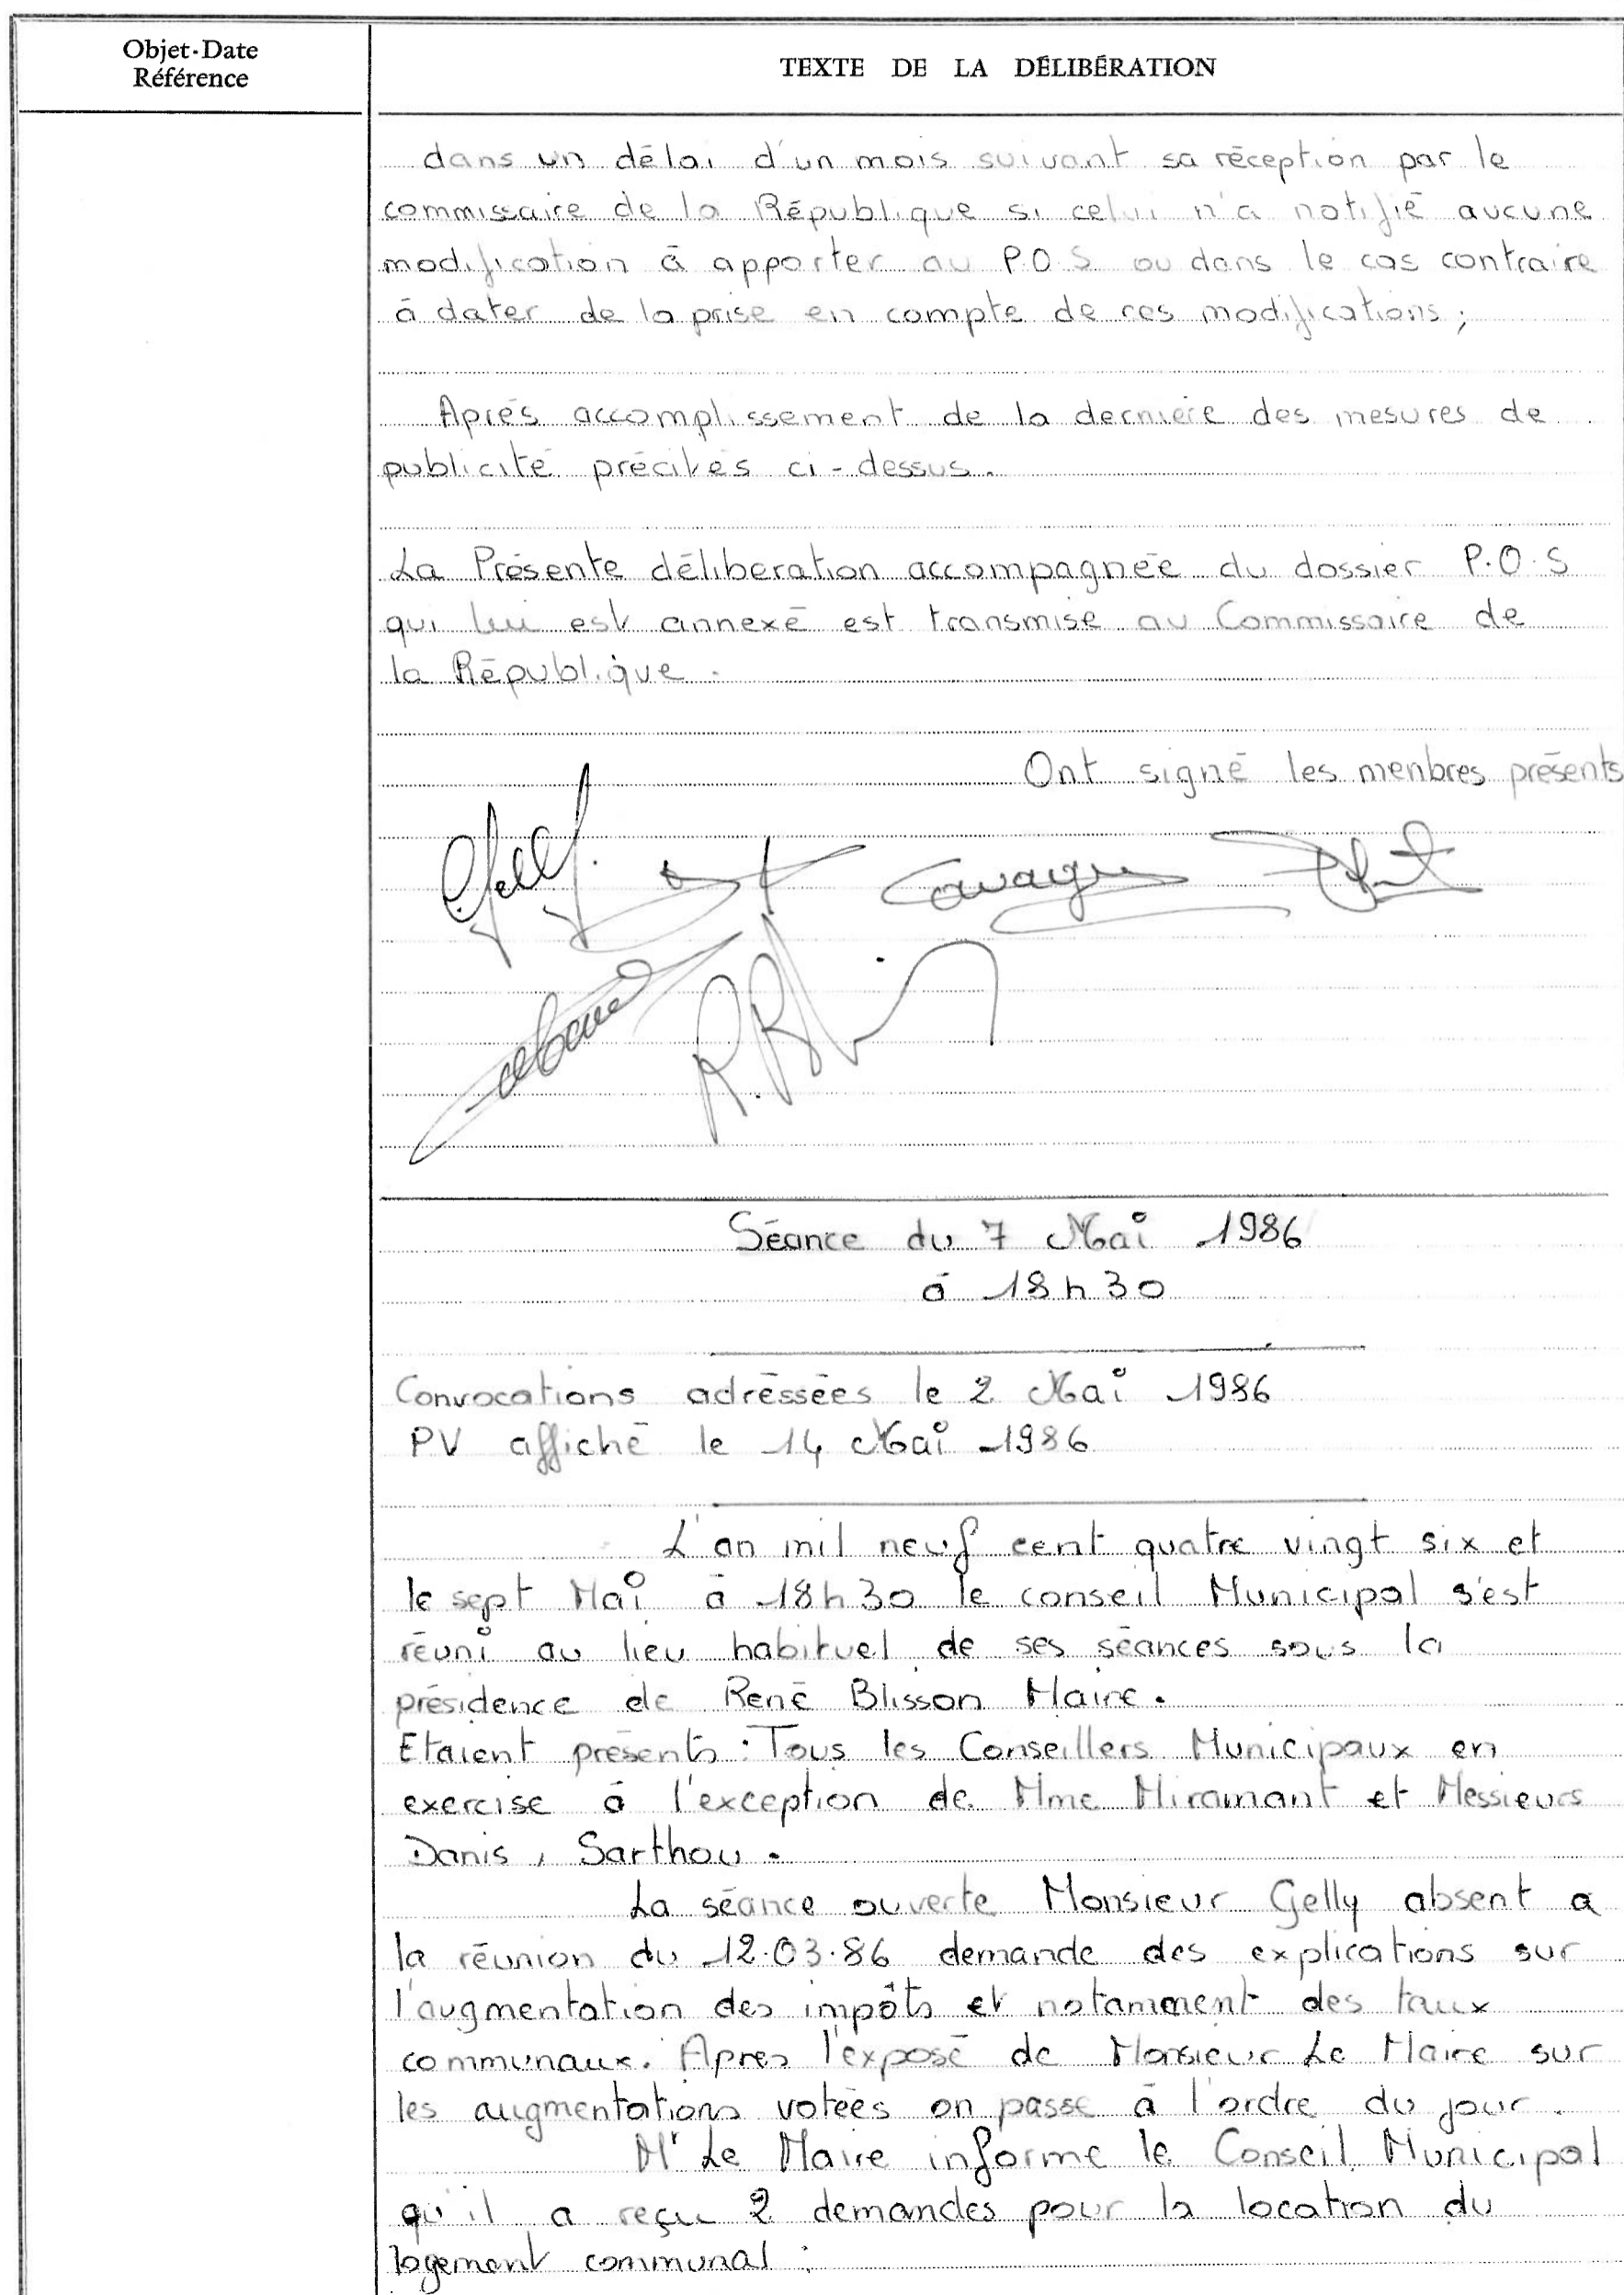 Objet-Date
Référence
TEXTE DE LA DÉLIBÉRATION
dans un délai d'un mois suivant sa réception par le
commissaire de la République si celui n'a notifié aucune
modification à apporter au P.O.S ou dans le cas contraire
à dater de la prise en compte de ces modifications;
Après accomplissement de la dernière des mesures de
publicité précités ci-dessus.
La Présente déliberation accompagnée du dossier P.O.S
qui lui est annexé est transmise au Commissaire de
la République.
Ont signé les menbres présents
Gelly
Cavagn
Séance du 7 Mai 1986
à 18 h 30
Convocations adressées le 2 Mai 1986
PV affiché le 14 Mai 1986
L'an mil neuf cent quatre vingt six et
le sept Mai à 18h30 le conseil Municipal s'est
réuni au lieu habituel de ses séances sous la
présidence de René Blisson Maire.
Etaient présents : Tous les Conseillers Municipaux en
exercise à l'exception de Mme Miramant et Messieurs
Danis, Sarthou.
La séance ouverte Monsieur Gelly absent a
la réunion du 12.03.86 demande des explications sur
l'augmentation des impôts et notamment des taux
communaux. Apres l'exposé de Monsieur Le Maire sur
les augmentations votées on passe à l'ordre du jour.
Mr Le Maire informe le Conseil Municipal
qu'il a reçu 2 demandes pour la location du
logement communal :